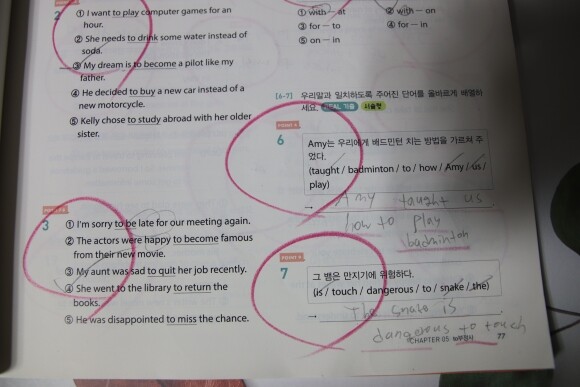 2
① I want to play computer games for an
hour.
② She needs to drink some water instead of
soda.
③ My dream is to become a pilot like my
father.
④ He decided to buy a new car instead of a
new motorcycle.
⑤ Kelly chose to study abroad with her older
sister.
3
① I'm sorry to be late for our meeting again.
② The actors were happy to become famous
from their new movie.
③ My aunt was sad to quit her job recently.
④ She went to the library to return the
books.
⑤ He was disappointed to miss the chance.
① with — at
② with — on
③ for — to
④ for — in
⑤ on — in
[6-7] 우리말과 일치하도록 주어진 단어를 올바르게 배열하
세요. 기출 서술형
6
Amy는 우리에게 배드민턴 치는 방법을 가르쳐 주
었다.
(taught / badminton / to / how / Amy / us /
play)
→ Amy taught us
how to play
badminton
7
그 뱀은 만지기에 위험하다.
(is / touch / dangerous / to / snake / the)
→ The snake is
dangerous to touch
CHAPTER 05 to부정사 77